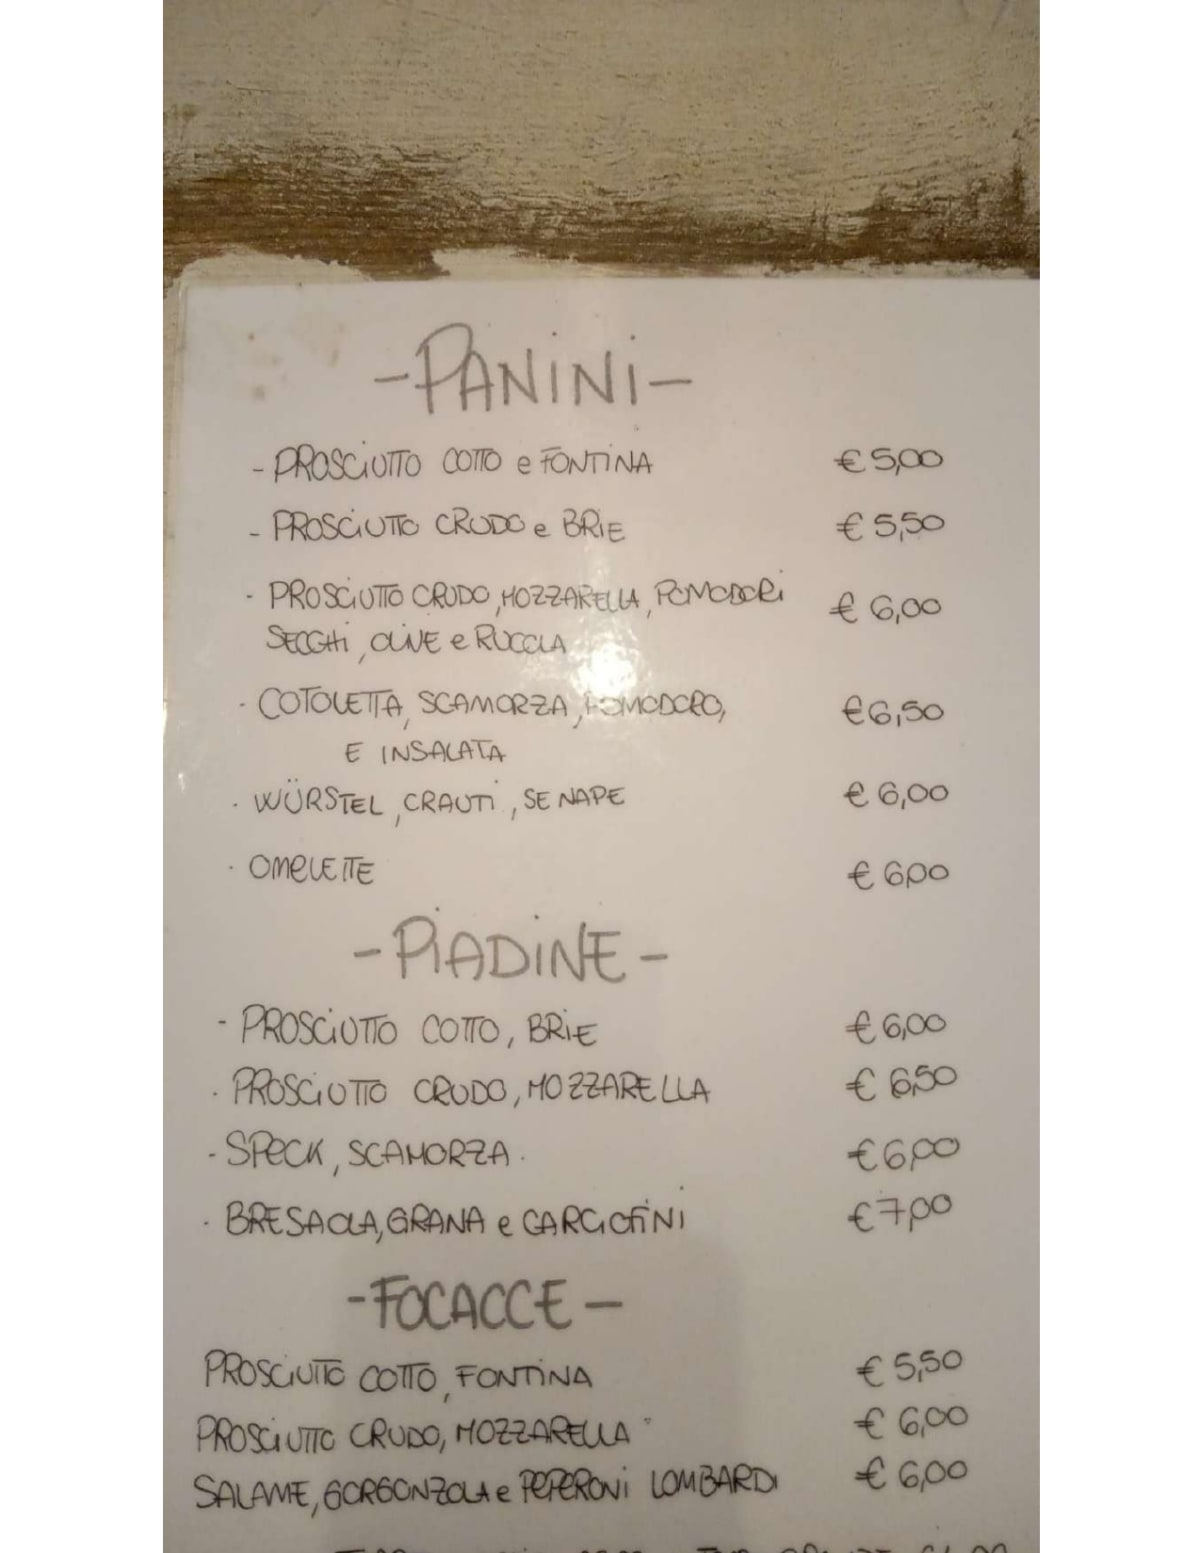 -PANINI-
- PROSCIUTTO COTTO e FONTINA € 5,00
- PROSCIUTTO CRUDO e BRIE € 5,50
- PROSCIUTTO CRUDO, MOZZARELLA, POMODORI € 6,00
SECCHI, OLIVE e RUCOLA
· COTOLETTA, SCAMORZA, POMODORO, € 6,50
E INSALATA
· WÜRSTEL, CRAUTI, SENAPE € 6,00
· OMELETTE € 6,00
-PIADINE-
- PROSCIUTTO COTTO, BRIE € 6,00
· PROSCIUTTO CRUDO, MOZZARELLA € 6,50
- SPECK, SCAMORZA. € 6,00
· BRESAOLA, GRANA e CARCIOFINI € 7,00
-FOCACCE-
PROSCIUTTO COTTO, FONTINA € 5,50
PROSCIUTTO CRUDO, MOZZARELLA € 6,00
SALAME, GORGONZOLA e PEPERONI LOMBARDI € 6,00